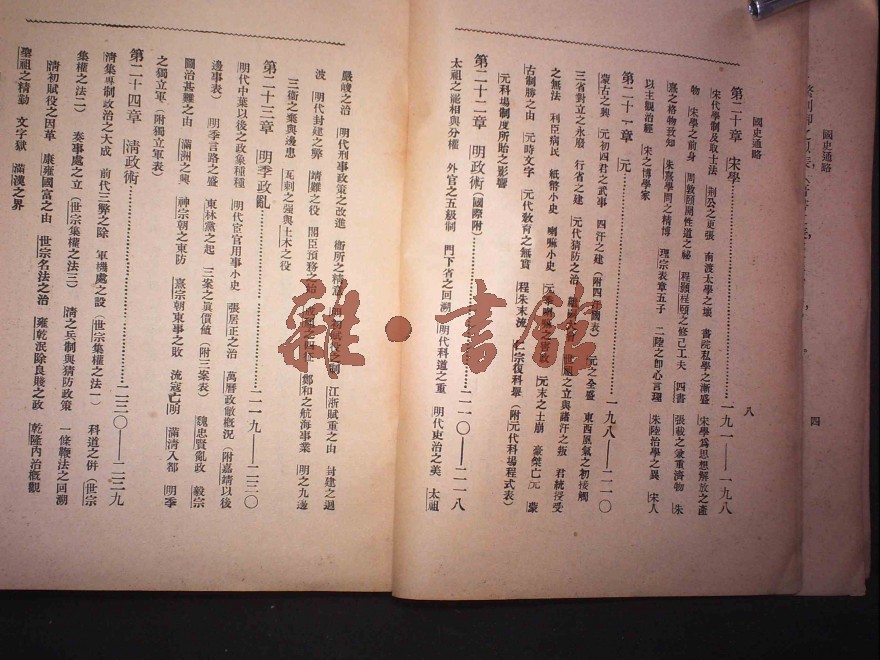 國史通略
八
第二十章　宋學……一九一—一九八
宋代學制及取士法　荊公之更張　南渡太學之壞　書院私學之漸盛　宋學爲思想解放之產
物　宋學之前身　周敦頤闡性道之祕　程顥程頤之修己工夫　四書　張載之兼重濟物　朱
熹之格物致知　朱熹學問之精博　理宗表章五子　二陸之卽心言理　朱陸治學之異　宋人
以主觀治經　宋之博學家
第二十一章　元……一九八—二一〇
蒙古之興　元初四君之武事　四汗之建（附四汗國表）　元之全盛　東西風氣之初接觸
三省對立之永廢　行省之建　元代猜防之治　世祖之立與諸汗之叛　君統授受
之無法　利臣病民　紙幣小史　喇嘛小史　元末之土崩　豪傑亡元　蒙
古制勝之由　元時文字　元代敎育之無實　程朱末流　仁宗復科舉　（附元代科場程式表）
元科場制度所貽之影響
第二十二章　明政術（國際附）……二一〇—二一八
太祖之能相與分權　外官之五級制　門下省之回溯　明代科道之重　明代吏治之美　太祖
嚴峻之治　明代刑事政策之改進　衞所之精意　江浙賦重之由　封建之迴
波　明代封建之弊　靖難之役　閣臣預務之始　鄭和之航海事業　明之九邊
三衞之棄與邊患　瓦剌之强與土木之役
第二十三章　明季政亂……二一九—二三〇
明代中葉以後之政象種種　明代宦官用事小史　張居正之治　萬曆政敝槪況（附嘉靖以後
邊事表）　明季言路之盛　東林黨之起　三案之眞價値（附三案表）　魏忠賢亂政　毅宗
圖治甚難之由　滿洲之興　神宗朝之東防　熹宗朝東事之敗　流寇亡明　滿淸入都　明季
之獨立軍（附獨立軍表）
第二十四章　淸政術……二三〇—二三九
淸集專制政治之大成　前代三弊之除　軍機處之設（世宗集權之法一）　科道之併（世宗
集權之法二）　奏事處之立（世宗集權之法三）　淸之兵制與猜防政策　一條鞭法之回溯
淸初賦役之因革　康雍國富之由　世宗名法之治　雍乾泯除良賤之政　乾隆內治槪觀
聖祖之精勤　文字獄　滿漢之界
國史通略
四
雜·書館